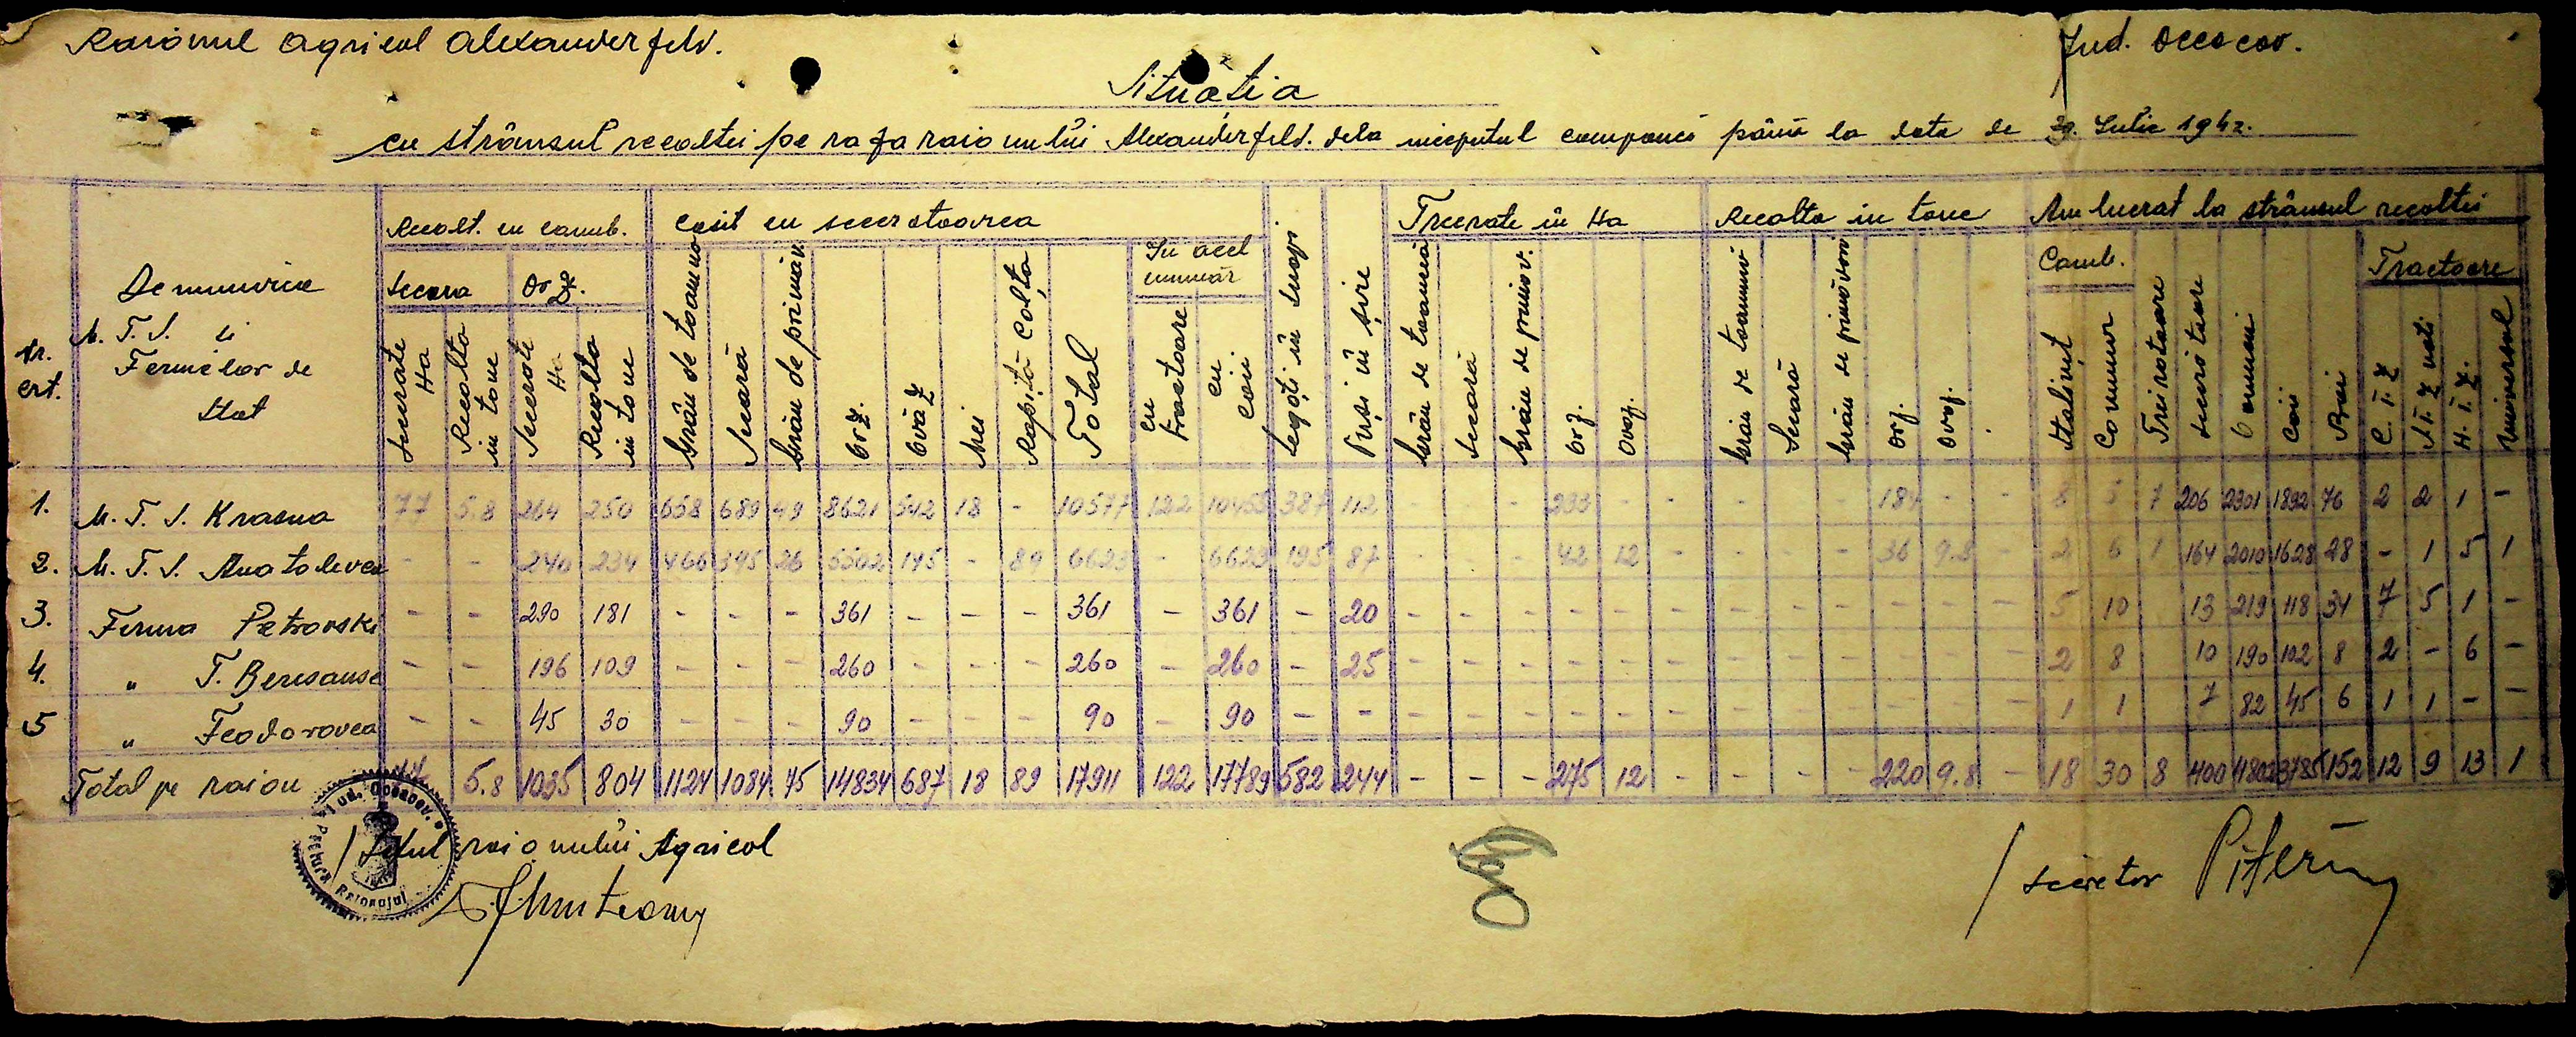 Raionul Agricol Alexanderfeld.
Jud. Oceacov.
Situatia
cu strânsul recoltei pe raza raionului Alexanderfeld. dela inceputul companei până la data de 29. Iulie 1942.
Nr. crt.
Denumirea M. T. S. si Fermelor de Stat
Recolt. cu comb.
Secara
Orz.
Secerate Ha
Recolta in tone
Secerate Ha
Recolta in tone
Cosit cu seceratoarea
Grân de toamnă
Secară
Grân de primăv.
Orz.
Ovăz
Mei
Rapiță Colța
Total
In acel număr
cu tractoare
cu Caii
Legați în snopi.
Puși în șire
Treerate în Ha
Grân de toamnă
Secară
Grân de primav.
Orz.
Ovaz.
Recolta in tone
Grân de toamnă
Secară
Grân de primăvară
Orz.
Ovaz.
Au lucrat la strânsul recoltei
Comb.
Stalinșt
Comunar
Treirotoare
Seceritoare
Oameni
Caii
Boi
Tractoare
C. T. Z
S. T. Z nati
H. T. Z.
Universal
1. M. T. S. Krasna 77 5.8 264 250 658 689 49 8621 542 18 - 10577 122 10455 387 112 - - - 233 - - - - - 184 - - 8 5 7 206 2301 1892 76 2 2 1 -
2. M. T. S. Anatolevca - - 240 234 466 395 26 5502 145 - 89 6623 - 6623 195 87 - - - 42 12 - - - - 36 9.8 - 2 6 1 164 2010 1628 28 - 1 5 1
3. Ferma Petrovski - - 290 181 - - - 361 - - - 361 - 361 - 20 - - - - - - - - - - - - 5 10 13 219 118 34 7 5 1 -
4. " T. Beresansc - - 196 109 - - - 260 - - - 260 - 260 - 25 - - - - - - - - - - - - 2 8 10 190 102 8 2 - 6 -
5 " Feodorovca - - 45 30 - - - 90 - - - 90 - 90 - - - - - - - - - - - - - - 1 1 7 82 45 6 1 1 - -
Total pe raion 77 5.8 1035 804 1124 1084 75 14834 687 18 89 17911 122 17789 582 244 - - - 275 12 - - - - 220 9.8 - 18 30 8 400 4802 3785 152 12 9 13 1
Jud. Oceacov. Pretura Raionului
/ Șeful raionului Agricol
/ Secretar